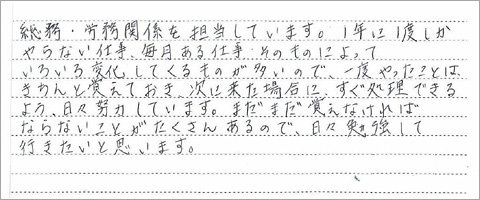 総務・労務関係を担当しています。1年に1度しか
やらない仕事、毎月ある仕事そのものによって
いろいろ変化してくるものが多いので、一度やったことは、
きちんと覚えておき、次に来た場合に、すぐ処理できる
よう、日々努力しています。まだまだ覚えなければ
ならないことがたくさんあるので、日々勉強して
行きたいと思います。